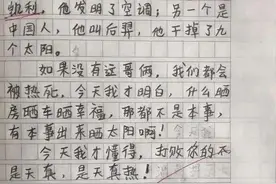 凯利，他发明了空调；另一个是
中国人，他叫后羿，他干掉了九
个太阳。
如果没有这哥俩，我们都会
被热死。今天我才明白，什么晒
房晒车晒幸福，那都不是本事，
有本事出来晒太阳啊！
今天我才懂得，打败你的不
是天真，是天真热！